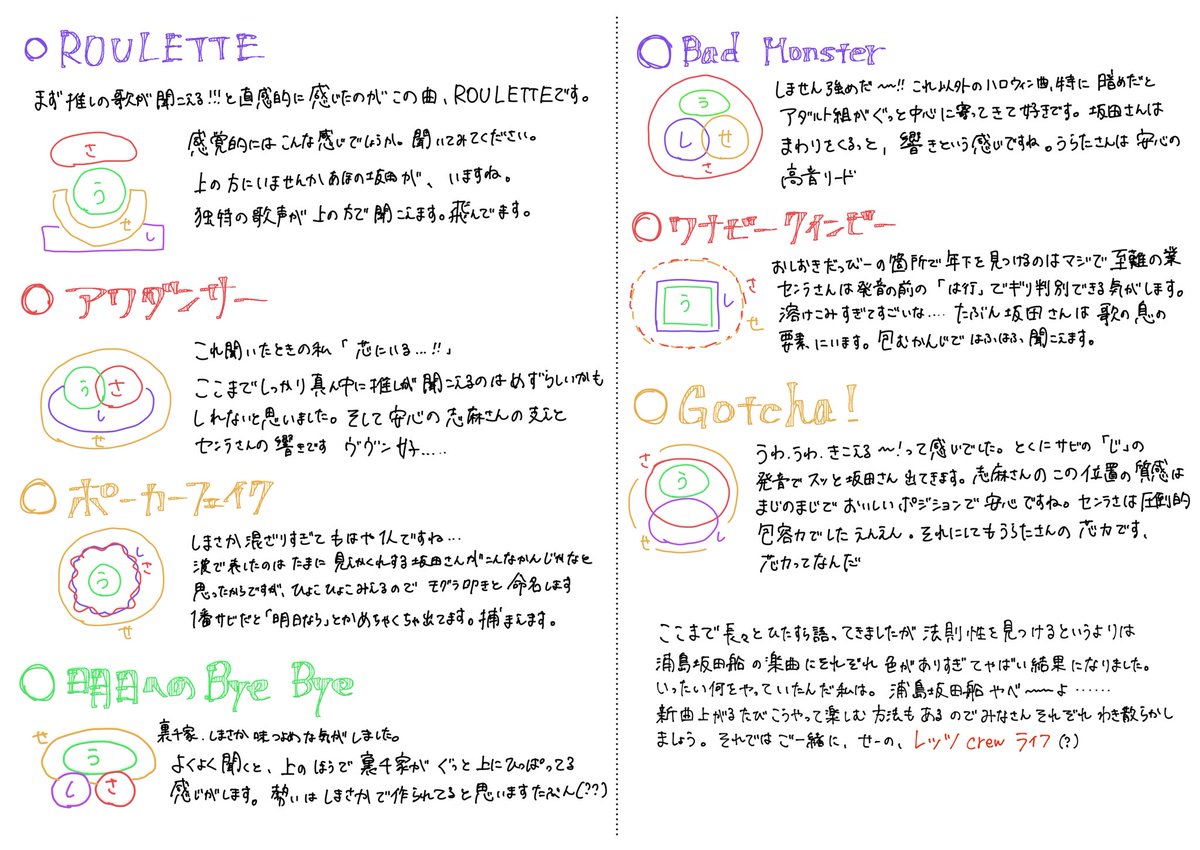 ○ROULETTE
まず推しの歌が聞こえる!!!と直感的に感じたのがこの曲、ROULETTEです。
さ
う
せ
し
感覚的にはこんな感じでしょうか。聞いてみてください。
上の方にいませんかあほの坂田が、いますね。
独特の歌声が上の方で聞こえます。飛んでます。
○アワダンサー
う
さ
し
せ
これ聞いたときの私「芯にいる…!!」
ここまでしっかり真ん中に推しが聞こえるのはめずらしいかも
しれないと思いました。そして安心の志麻さんの支えと
センラさんの響きです ヴヴン好.....
○ポーカーフェイク
う
し
さ
せ
しまさか混ざりすぎてもはや1人ですね…
波で表したのはたまに見えかくれする坂田さんがこんなかんじかなと
思ったからですが、ひょこひょこみえるのでモグラ叩きと命名します
1番サビだと「明日なら」とかめちゃくちゃ出てます。捕まえます。
○明日へのBye Bye
せ
う
し
さ
裏千家、しまさか味つよめな気がしました。
よくよく聞くと、上のほうで裏千家がぐっと上にひっぱってる
感じがします。勢いはしまさかで作られてると思いますたぶん(??)
○Bad Monster
う
し
せ
さ
しません強めだ〜〜!! これ以外のハロウィン曲、特に暗めだと
アダルト組がぐっと中心に寄ってきて好きです。坂田さんは
まわりをくるっと、響きという感じですね。うらたさんは安心の
高音リード
○ワナビーワインビー
う
し
さ
せ
おしおきだっびーの箇所で年下を見つけるのはマジで至難の業
センラさんは発音の前の「は行」でギリ判別できる気がします。
溶けこみすぎてすごいな…. たぶん坂田さんは歌の息の
要素にいます。包むかんじではふはふ、聞こえます。
○Gotcha!
さ
う
せ
し
うわ、うわ、きこえる〜!って感じでした。とくにサビの「じ」の
発音でスッと坂田さん出てきます。志麻さんのこの位置の質感は
まじのまじでおいしいポジションで安心ですね。センラさは圧倒的
包容力でしたえんえん。それにしてもうらたさんの芯力です、
芯力ってなんだ
ここまで長々とひたすら語ってきましたが法則性を見つけるというよりは
浦島坂田船の楽曲にそれぞれ色がありすぎてやばい結果になりました。
いったい何をやっていたんだ私は。浦島坂田船やべ〜〜〜よ……
新曲上がるたびこうやって楽しむ方法もあるのでみなさんそれぞれわき散らかし
ましょう。それではご一緒に、せーの、レッツcrewライフ(?)